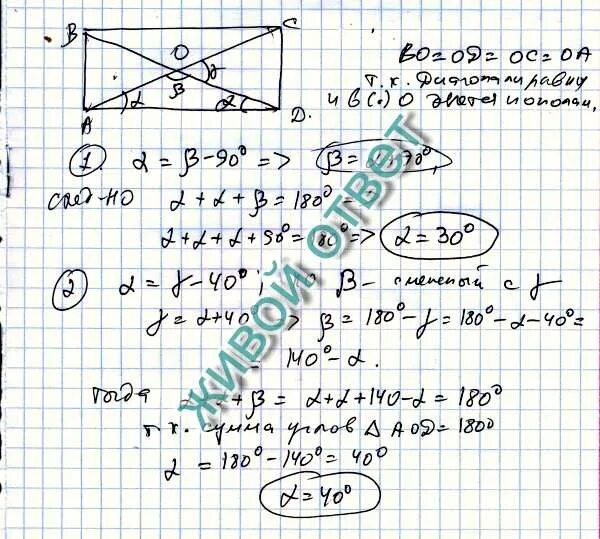 B C
O
γ
β
α α
A D.
BO = OD = OC = OA
т.к. Диагонали равны
и в (·) O делятся пополам,
① α = β - 90° => β = α + 90°,
след-но α + α + β = 180° =
α + α + α + 90° = 180° => α = 30°
② α = γ - 40°; β - смежный с γ
γ = α + 40° → β = 180° - γ = 180° - α - 40° =
= 140° - α.
тогда = + β = α + α + 140 - α = 180°
т.к. сумма углов Δ AOD = 180°
α = 180° - 140° = 40°
α = 40°
ЖИВОЙ ОТВЕТ